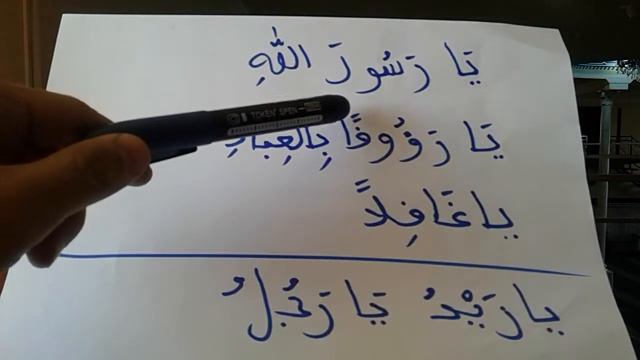 يَا رَسُولَ اللَّهِ
يَا رَؤُوفًا بِالْعِبَادِ
يا غَافِلاً
يا زَيْدُ يَا رَجُلُ
TOKEN SPEN